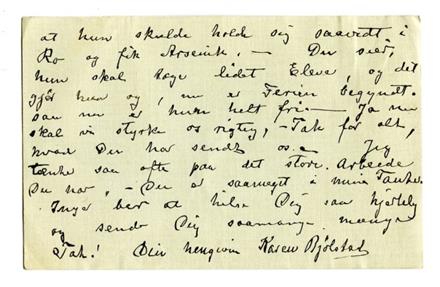 at hun skulde holde sig saavidt i
Ro og fik Arsenik. — Du siger,
hun skal tage lidet Eleve, og det
gjør hun og, nu er Ferien begyndt.
saa nu er hun helt fri — Ja nu
skal vi styrke os rigtig, — Tak for alt,
hvad Du har sendt os. — Jeg
tænke saa ofte paa det store Arbeide
Du har, — Du er saameget i mine Tanke.
Inga ber at hilse Dig saa hjertelig
og sende Dig saamange mange
Tak! Din hengivne Karen Bjølstad